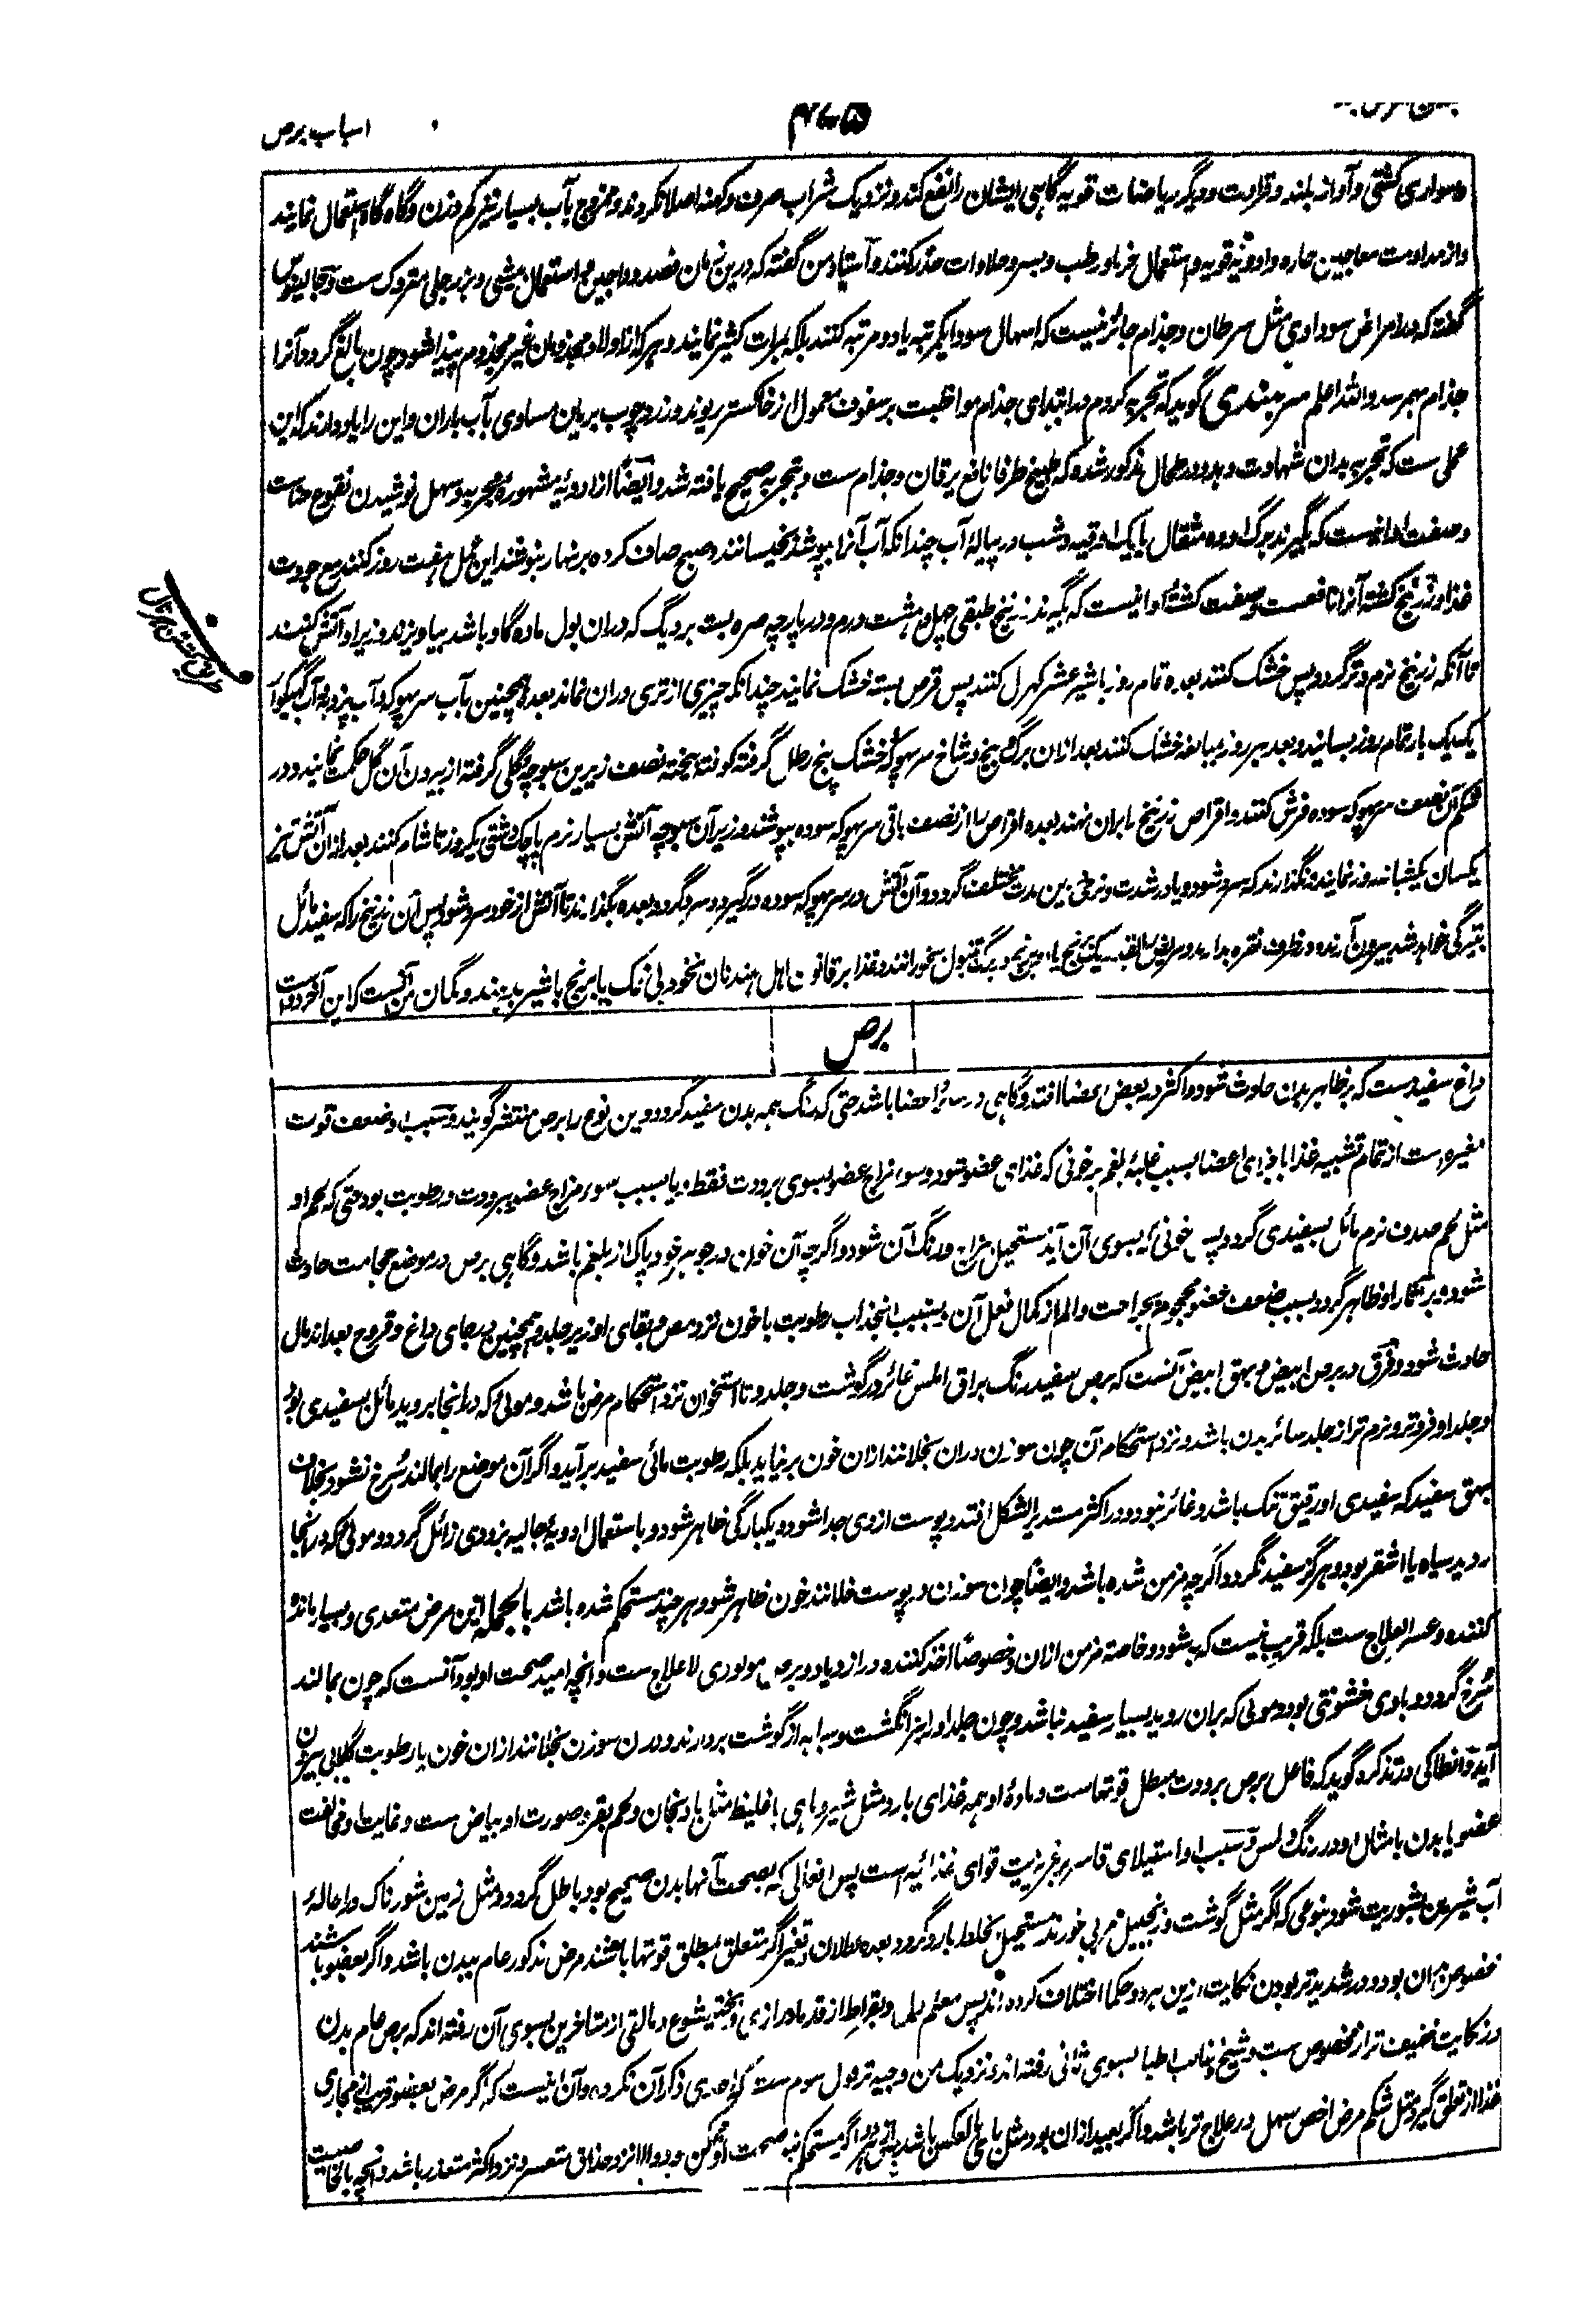 اسباب برص
وسواری کشتی و آواز بلند و قرارت و دیگر ریاضات قویه گاهی ایشان را نفع کند و نزدیک شراب صرف و کهنه اصلا نگردند و ممزوج بآب بسیار نیم گرم کرده وگاه گاه استعمال نمایند
واز مداومت معاجین حاره و ادویه قویه و استعمال خرما و رطب و بسر و حلاوات حذر کنند و استاد من گفته که درین زمان فصد وداجین و استعمال میشی و بزبر جلی متروک ست و جالینوس
گفته که در امراض سوداوی مثل سرطان و جذام جائز نیست که اسهال سودا یکمرتبه یا دو مرتبه کنند بلکه بمرات کثیر نمایند و هر که از اولاد مجذومان غیر مجذوم پیدا شود چون بالغ گردد آنرا
جذام بهم رسد والله اعلم سرهندی گوید که تجربه کردم در ابتدای جذام مواظبت بر سفوف معمول از خاکستر ریوند و زردچوب بریان مساوی بآب باران و این را یاد دارند که این
عملی ست که تجربه بدان شهادت دهد و در طحال مذکور شده که طبیخ طرفا نافع یرقان و جذام ست و بتجربه صحیح یافته شد و ایضا از ادویه مشهوره مجربه و سهل نوشیدن نقوع حناست
وصفت او انیست که بگیرند برگ او ده مثقال یا یک اوقیه و شب در پیاله آب چندانکه آب آنرا بپوشد بخیسانند و صبح صاف کرده برنهار بنوشند این عمل هفت روز کنند مع جودت
غذا و زرنیخ کشته آنرا نافعست وصفت کشته او انیست که بگیرند زرنیخ طبقی چهل و هشت درم و در پارچه صره بست بر دیگ که دران بول ماده گاو باشد بیاویزند و زیر او آتش کنند
تا آنکه زرنیخ نرم و تر گردد پس خشک کنند بعده تمام روز با شیر عشر کهرل کنند پس قرص بسته خشک نمایند چندانکه چیزی از تری دران نماند بعده همچنین بآب سرپهوکه و آب
یک یک بار تمام روز بسایند و بعد هر روز مبالغه خشک کنند بعد ازان برگ و بیخ و شاخ سرپهوکه خشک پنج رطل گرفته کوفته بیخته نصف زیرین سبوچه گلی گرفته از بیرون آن گل حکمت نمایند و در
شکم آن نصف سرپهوکه سوده فرش کنند و اقراص زرنیخ را بران نهند بعده اقراص را از نصف باقی سرپهوکه سوده بپوشند و زیر آن سبوچه آتش بسیار نرم پاچک دشتی یکروز تا شام کنند بعد ازان آتش تیز
یکسان یک شبانه روز نمایند و نگذارند که سرد شود و یا در شدت و نرمی بین مدت مختلف گردد و آن آتش در سرپهوکه سوده در گیرد و سرد گردد بعده بگذارند تا آتش از خود سرد شود پس آن زرنیخ را که سفید مائل
بتیرگی خواهد شد بیرون آرند و در ظرف نقره بدارند و مریض را بقدر یک برنج یا دو برنج در برگ تنبول بخورانند و غذا بر قانون اهل هند نان نخود بی نمک یا برنج با شیر بدهند و گمان من آنست که این آخر دواست
طریق کشتن هرتال
برص
داغ سفید ست که بر ظاهر بدن حادث شود و اکثر در بعض اعضا افتد و گاهی در سائر اعضا باشد حتی که رنگ همه بدن سفید گردد و این نوع را برص منتشر گویند و سبب او ضعف قوت
مغیره است از تمام تشبیه غذا باجزای اعضا بسبب غلبه بلغم بر خونی که غذای عضو شود و سوء مزاج عضو بسوی برودت فقط و یا بسبب سوء مزاج عضو ببرودت و رطوبت بود حتی که لحم او
مثل لحم صدف نرم مائل بسفیدی گردد پس خونی که بسوی آن آید مستحیل بمزاج و رنگ آن شود و اگرچه آن خون در جوهر خود پاک از بلغم باشد و گاهی برص در موضع حجامت حادث
شود و بر آثار او ظاهر گردد بسبب ضعف عضو محجوم بجراحت و الم از کمال فعل آن و بسبب انجذاب رطوبت با خون نزد مص و بقای او زیر جلد و همچنین بر جای داغ و قروح بعد اندمال
حادث شود و فرق در برص ابیض و بهق ابیض آنست که برص سفید رنگ براق املس غائر در گوشت و جلد و تا استخوان نزد استحکام مرض باشد و موئی که در آنجا بروید مائل بسفیدی بود
و جلد او فروتر و نرم تر از جلد سائر بدن باشد و نزد استحکام آن چون سوزن دران بخلانند ازان خون بر نیاید بلکه رطوبت مائی سفید برآید و اگر آن موضع را بمالند سرخ نشود بخلاف
بهق سفید که سفیدی او رقیق تنک باشد و غائر نبود و در اکثر مستدیر الشکل افتد و پوست از وی جدا شود و یکبارگی ظاهر شود و باستعمال ادویه جالیه بزودی زائل گردد و موئی که در آنجا
روید سیاه یا اشقر بود و هرگز سفید نگردد اگرچه مزمن شده باشد و ایضا چون سوزن در پوست خلانند خون ظاهر شود هرچند مستحکم شده باشد بالجمله این مرض متعدی و بسیار ایذا
کننده و عسر العلاج ست بلکه قریب نیست که به شود و خاصه مزمن ازان و خصوصا اخذ کننده در ازدیاد و برص مولودی لا علاج ست و آنچه امید صحت او بود آنست که چون بمالند
سرخ گردد و با وی خشونتی بود و موئی که بران روید بسیار سفید نباشد و چون جلد او را بدو انگشت و سبابه از گوشت بردارند و دران سوزن بخلانند ازان خون یا رطوبت گلابی بیرون
آید و انطاکی در تذکره گوید که فاعل برص برودت مبطل قوتهاست و ماده او همه غذای بارد مثل شیر و ماهی یا غلیظ مثل بادنجان و لحم بقر و صورت او بیاض ست و غایت او مخالفت
عضو یا بدن با مثال او در رنگ و لمس و سبب او استیلای قاسر بر غریزیت قوای غذائیه است پس افعالی که بصحت آنها بدن صحیح بود باطل گردد و مثل زمین شورناک و احاله
آب شیرین بشوریت شود بنوعی که اگر مثل گوشت و زنجبیل مربی خورند مستحیل بخلط بارد گردد بعده بطلان و تغیر اگر متعلق بمطلق قوتها باشند مرض مذکور عام ببدن باشد و اگر بعضو باشند
مخصوص بران بود و در شدید تر بودن نکایت ازین هر دو حکما اختلاف کرده اند پس معلم اول و بقراط از قدما و رازی و بختیشوع و مالقی از متاخرین بسوی آن رفته اند که برص عام بدن
در نکایت خفیف تر از مخصوص ست و شیخ و غالب اطبا بسوی ثانی رفته اند و نزدیک من وجیه تر قول سوم ست که احدی ذکر آن نکرده و آن انیست که اگر مرض بعضو قریب از مجاری
غذا از تعلق گیرد مثل شکم مرض اخص سهل در علاج تر باشد و اگر بعید ازان بود مثل پا پس بالعکس باشد صحت او ممکن بود و الا نزد حذاق متعسر و نزد اکثر متعذر باشد و آنچه بالخاصیت